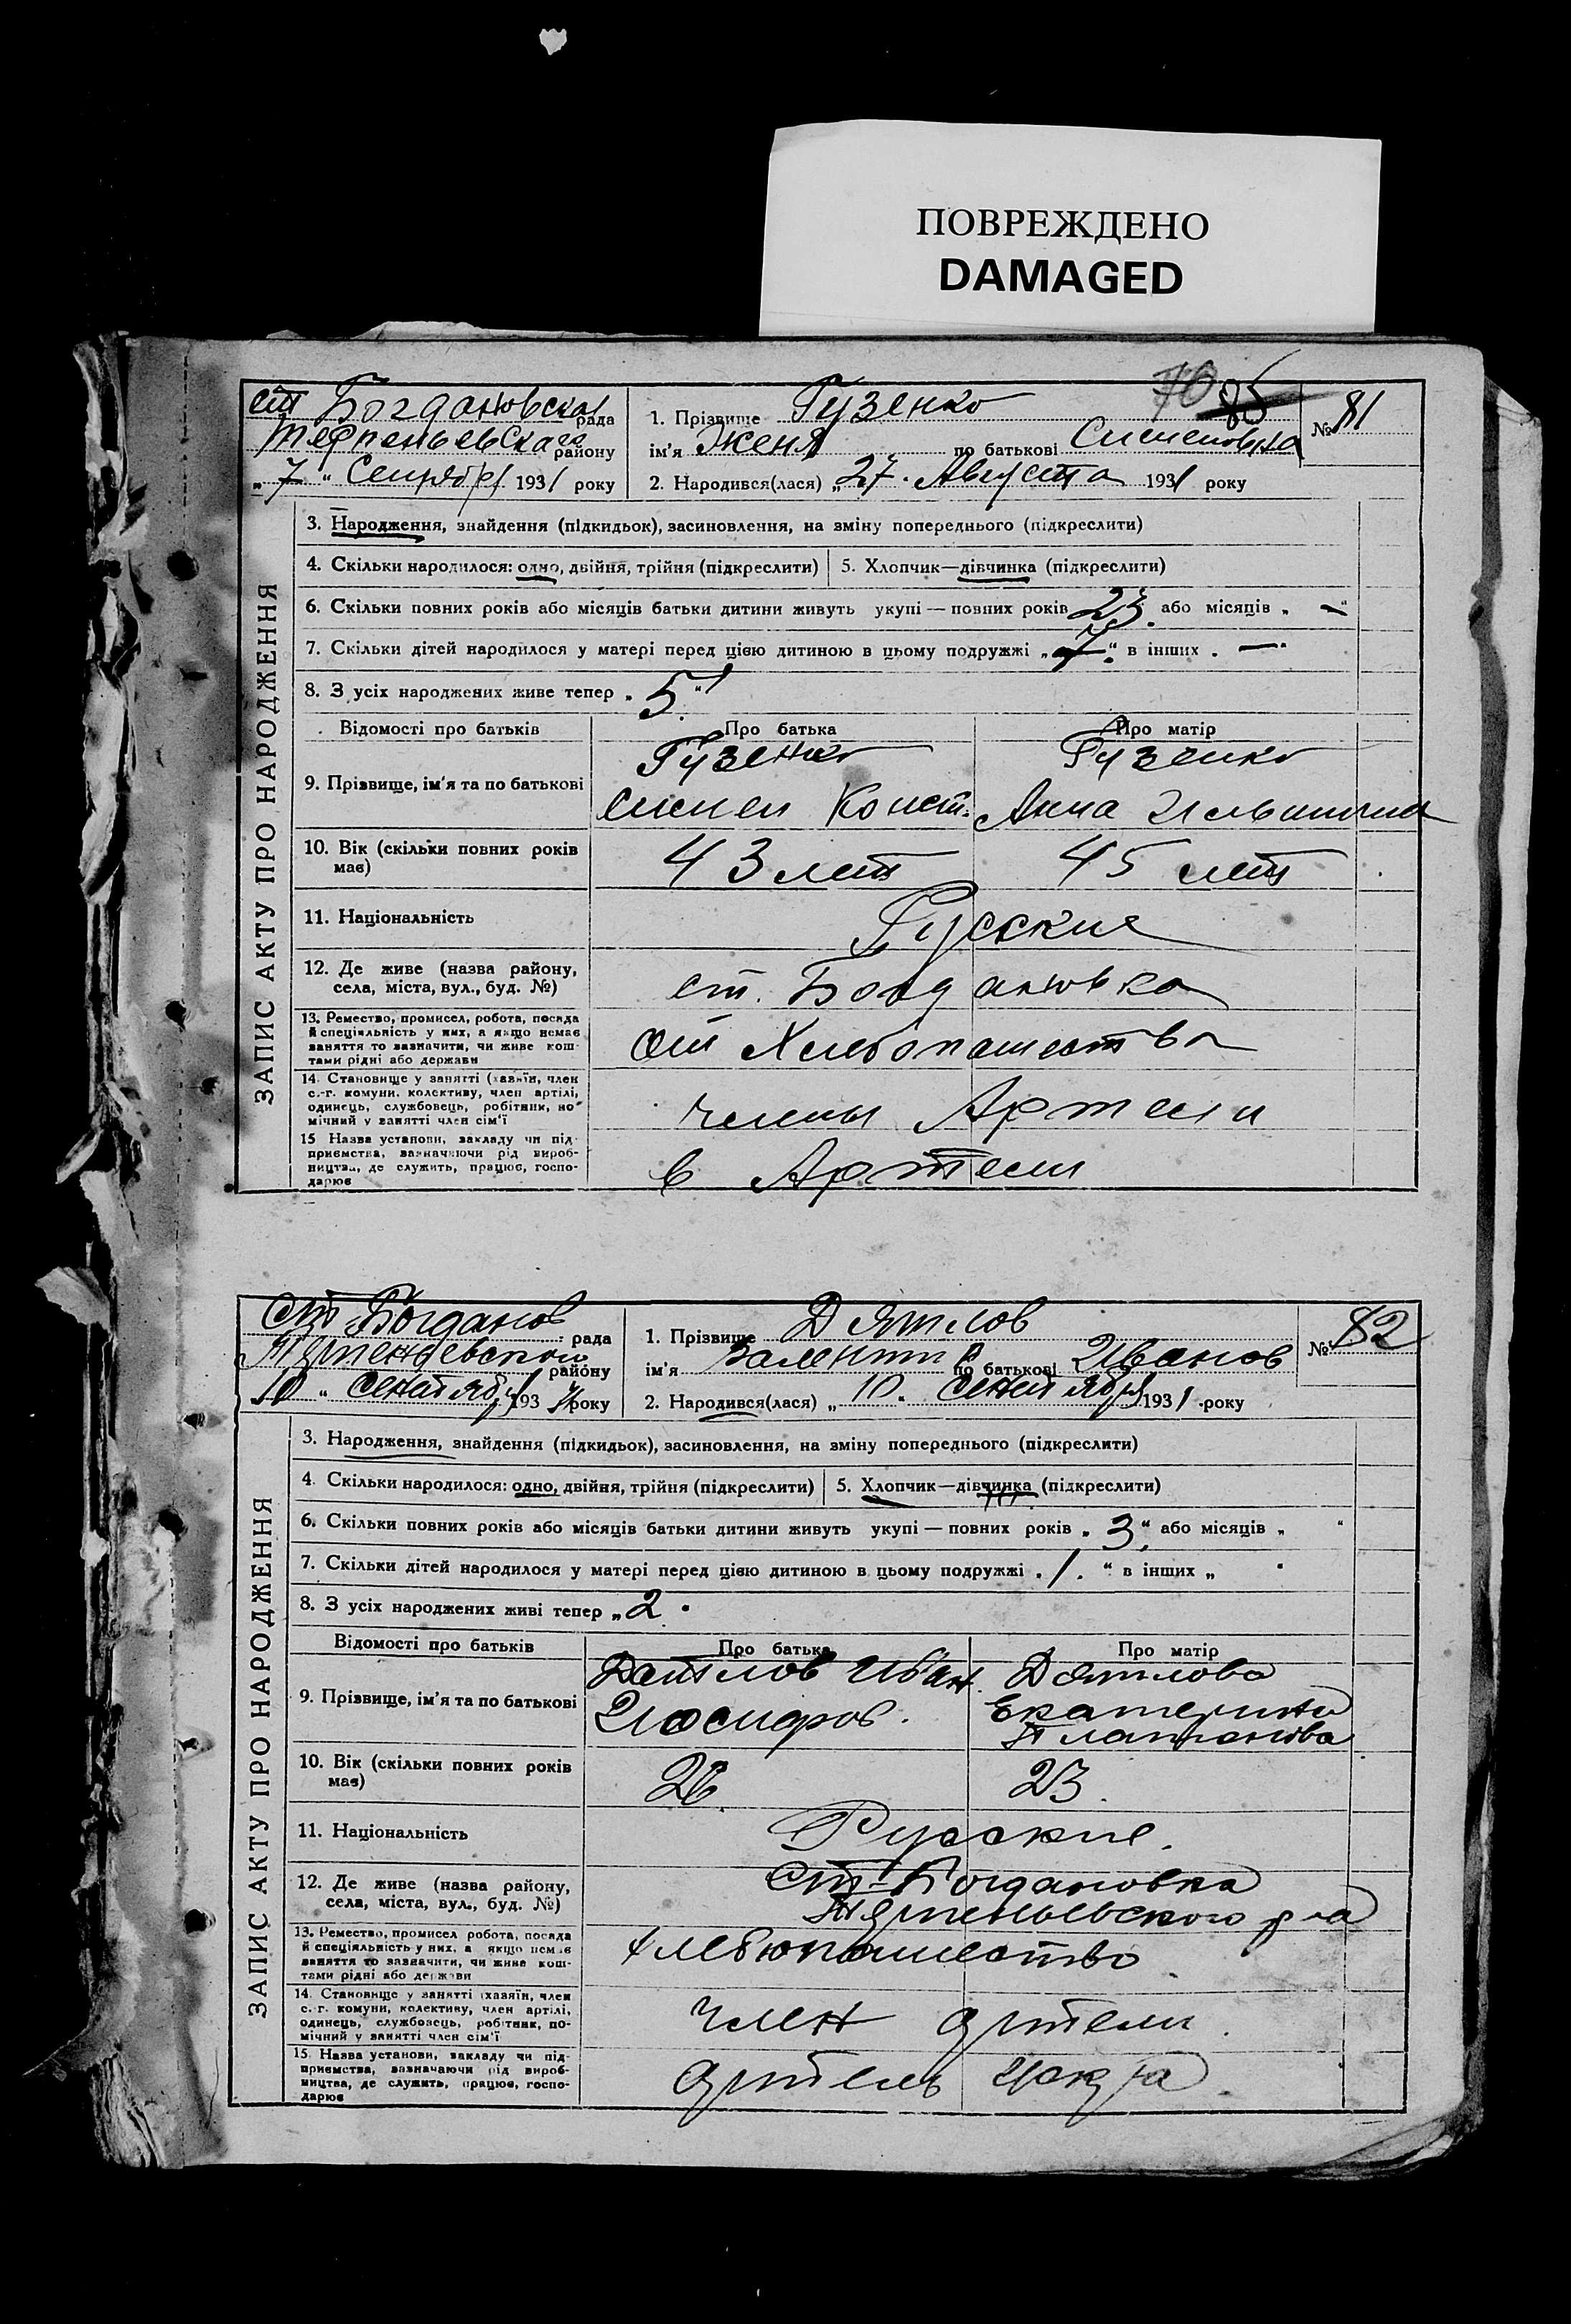 ПОВРЕЖДЕНО
DAMAGED
70 85
ст Богдановская рада
району
„ 7 “ Сентября 1931 року
1. Прізвище Гузенко
ім'я Женя по батькові Сименовна
2. Народився(лася) „ 27 “ Августа 1931 року
№ 81
ЗАПИС АКТУ ПРО НАРОДЖЕННЯ
3. Народження, знайдення (підкидьок), засиновлення, на зміну попереднього (підкреслити)
4. Скільки народилося: одно, двійня, трійня (підкреслити) 5. Хлопчик—дівчинка (підкреслити)
6. Скільки повних років або місяців батьки дитини живуть укупі — повних років 23 або місяців „ — “
7. Скільки дітей народилося у матері перед цією дитиною в цьому подружжі „ 7 “ в інших „ — “
8. З усіх народжених живе тепер „ 5 “
Відомості про батьків Про батька Про матір
Гузенко Гузенко
9. Прізвище, ім'я та по батькові
Симен Конст. Анна Ильинична
10. Вік (скільки повних років має) 43 лет 45 лет
11. Національність Русские
12. Де живе (назва району, села, міста, вул., буд. №) ст. Богдановка
13. Ремество, промисел, робота, посада й спеціяльність у них, а якщо немає заняття то зазначити, чи живе коштами рідні або держави
от Хлебопашества
14. Становище у занятті (хазяїн, член с.-г. комуни, колективу, член артілі, одинець, службовець, робітник, помічний у занятті член сім'ї
члены Артели
15 Назва установи, закладу чи підприємства, вазначаючи рід виробництва, де служить, працює, господарює
в Артели
Ст. Богданов рада
району
10 “ Сентября 1931 року
1. Прізвище Дятлов
ім'я Валентин по батькові Иванов
2. Народився(лася) „ 10 “ Сентября 1931 року
№ 82
ЗАПИС АКТУ ПРО НАРОДЖЕННЯ
3. Народження, знайдення (підкидьок), засиновлення, на зміну попереднього (підкреслити)
4. Скільки народилося: одно, двійня, трійня (підкреслити) 5. Хлопчик—дівчинка (підкреслити)
6. Скільки повних років або місяців батьки дитини живуть укупі — повних років „ 3 “ або місяців „ “
7. Скільки дітей народилося у матері перед цією дитиною в цьому подружжі „ 1 “ в інших „ “
8. З усіх народжених живі тепер „ 2 “
Відомості про батьків Про батька Про матір
Дятлов Иван Дятлова
9. Прізвище, ім'я та по батькові
Иосифов. Екатерина
Платонова
10. Вік (скільки повних років має) 26 23
11. Національність Русские
12. Де живе (назва району, села, міста, вул., буд. №) Ст. Богдановка
13. Ремество, промисел робота, посада й спеціяльність у них, а якщо немає заняття то зазначити, чи живе коштами рідні або держави
Хлебопашество
14. Становище у занятті (хазяїн, член с.-г. комуни, колективу, член артілі, одинець, службовець, робітник, помічний у занятті член сім'ї
член артели
15. Назва установи, закладу чи підприємства, вазначаючи рід виробництва, де служить, працює, господарює
артель